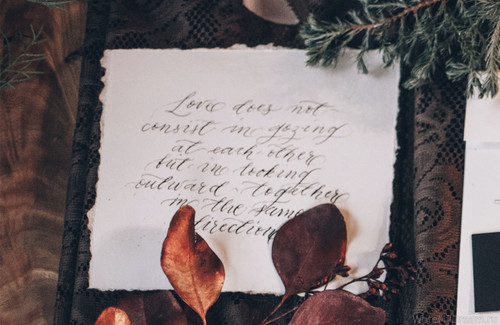 Love does not
consist in gozing
at each other
but in looking
outward together
in the same
direction